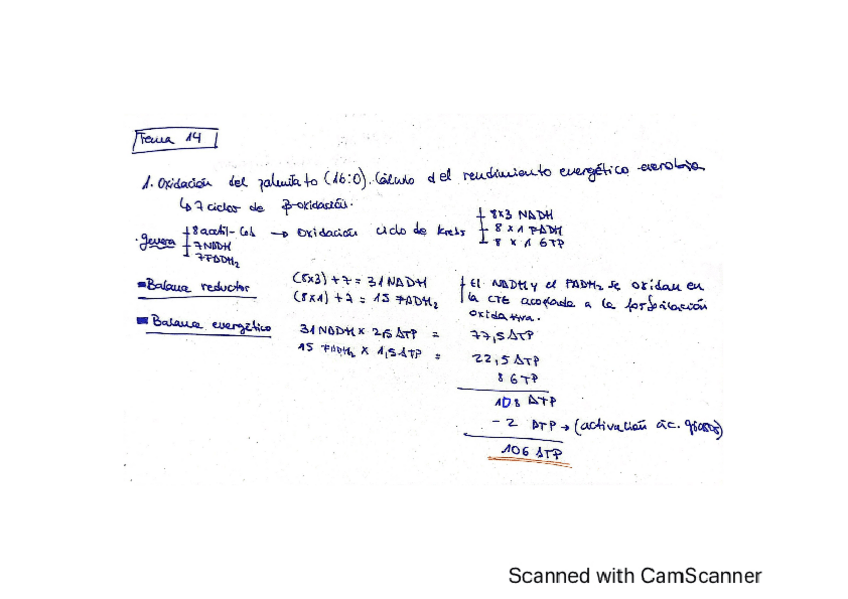 Tema 14
1. Oxidación del palmitato (16:0). Cálculo del rendimiento energético
↳ 7 ciclos de β-oxidación.
· genera 8 acetil-CoA → Oxidación ciclo de Krebs 8x3 NADH
7 NADH 8 x 1 FADH
7 FADH₂ 8 x 1 GTP
Balance reductor (8x3) + 7 = 31 NADH
(8x1) + 7 = 15 FADH₂
El NADH y el FADH₂ se oxidan en
la CTE acoplada a la fosforilación
oxidativa.
Balance energético 31 NADH x 2,5 ATP = 77,5 ATP
15 FADH₂ x 1,5 ATP = 22,5 ATP
8 GTP
108 ATP
- 2 ATP → (activación ác. grasos)
106 ATP
Scanned with CamScanner